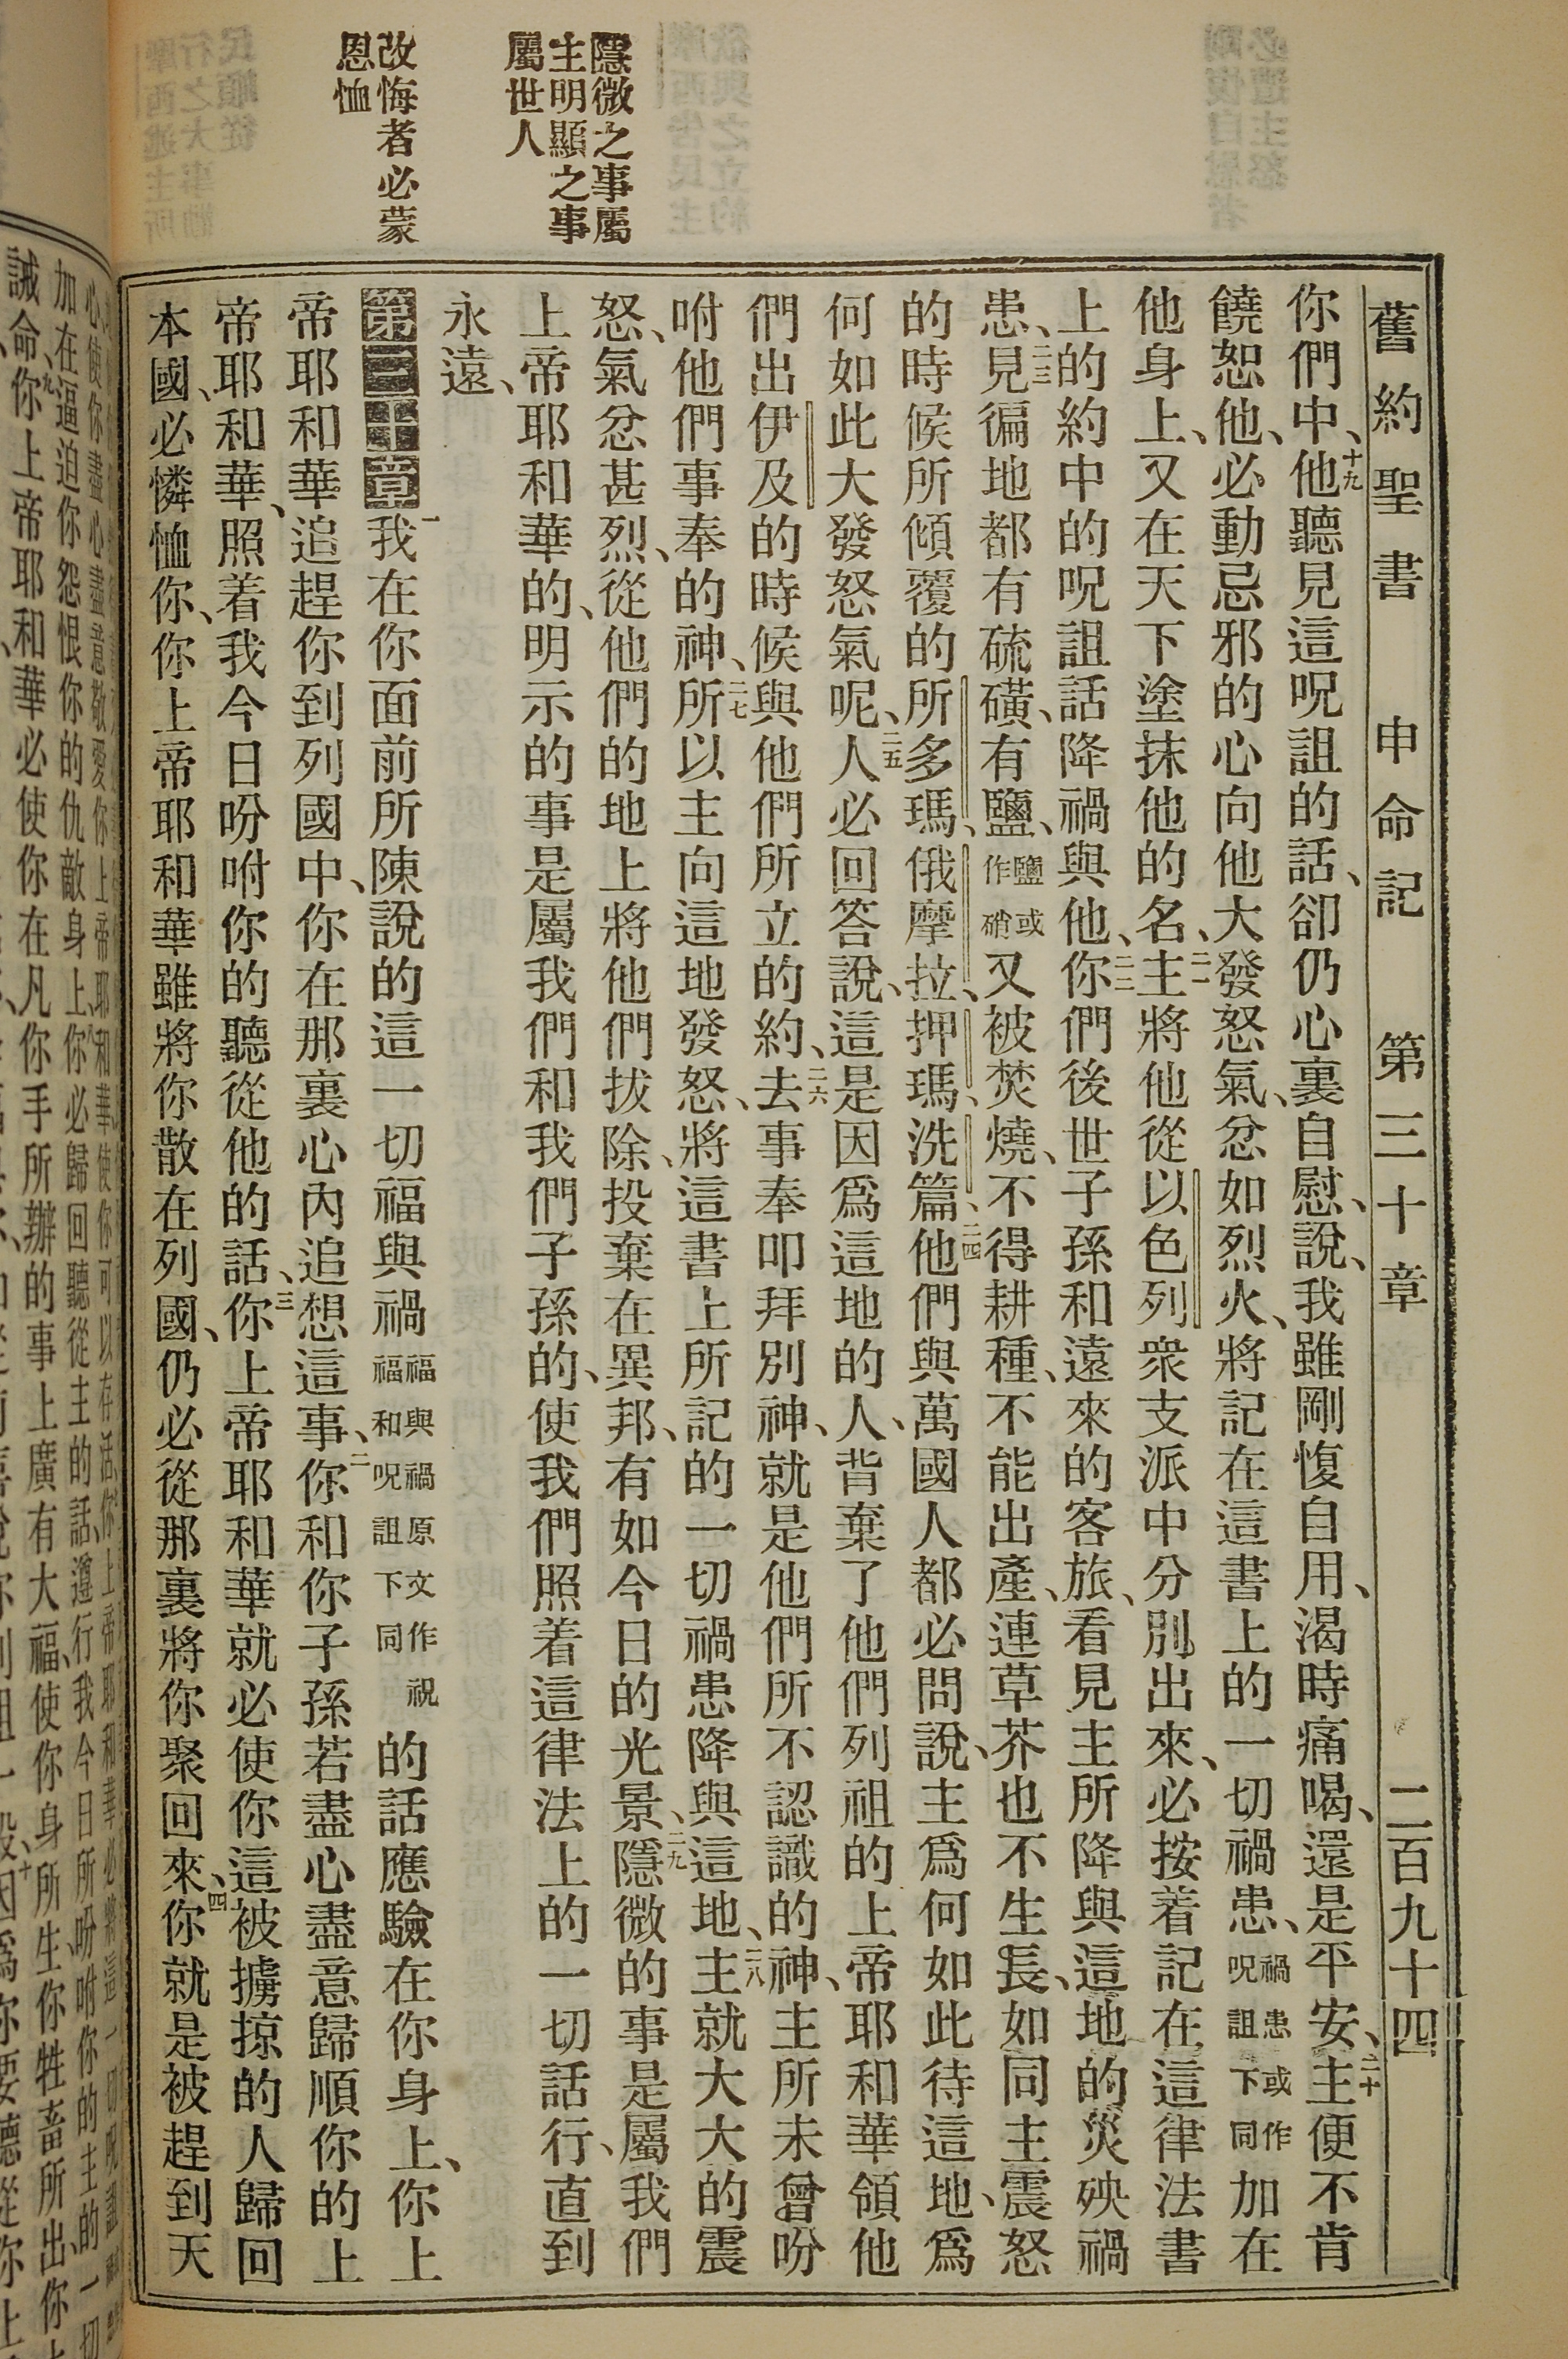 舊約聖書 申命記 第三十章 二百九十四
你們中、十九他聽見這呪詛的話、卻仍心裏自慰、說、我雖剛愎自用、渴時痛喝、還是平安、二十主便不肯
饒恕他、必動忌邪的心向他大發怒氣、忿如烈火、將記在這書上的一切禍患、禍患或作呪詛下同加在
他身上、又在天下塗抹他的名、二一主將他從以色列衆支派中分別出來、必按着記在這律法書
上的約中的呪詛話降禍與他、二二你們後世子孫和遠來的客旅、看見主所降與這地的災殃禍
患、二三見徧地都有硫磺、有鹽、鹽或作硝又被焚燒、不得耕種、不能出產、連草芥也不生長、如同主震怒
的時候所傾覆的所多瑪、俄摩拉、押瑪、洗篇、二四他們與萬國人都必問說、主爲何如此待這地、爲
何如此大發怒氣呢、二五人必回答說、這是因爲這地的人、背棄了他們列祖的上帝耶和華領他
們出伊及的時候與他們所立的約、二六去事奉叩拜別神、就是他們所不認識的神、主所未曾吩
咐他們事奉的神、二七所以主向這地發怒、將這書上所記的一切禍患降與這地、二八主就大大的震
怒、氣忿甚烈、從他們的地上將他們拔除、投棄在異邦、有如今日的光景、二九隱微的事是屬我們
上帝耶和華的、明示的事是屬我們和我們子孫的、使我們照着這律法上的一切話行、直到
永遠、
第三十章一我在你面前所陳說的這一切福與禍福與禍原文作祝福和呪詛下同的話應驗在你身上、你上
帝耶和華追趕你到列國中、你在那裏心內追想這事、二你和你子孫若盡心盡意歸順你的上
帝耶和華、照着我今日吩咐你的聽從他的話、三你上帝耶和華就必使你這被擄掠的人歸回
本國、必憐恤你、你上帝耶和華雖將你散在列國、仍必從那裏將你聚回來、四你就是被趕到天
隱微之事屬
主明顯之事
屬世人
改悔者必蒙
恩恤